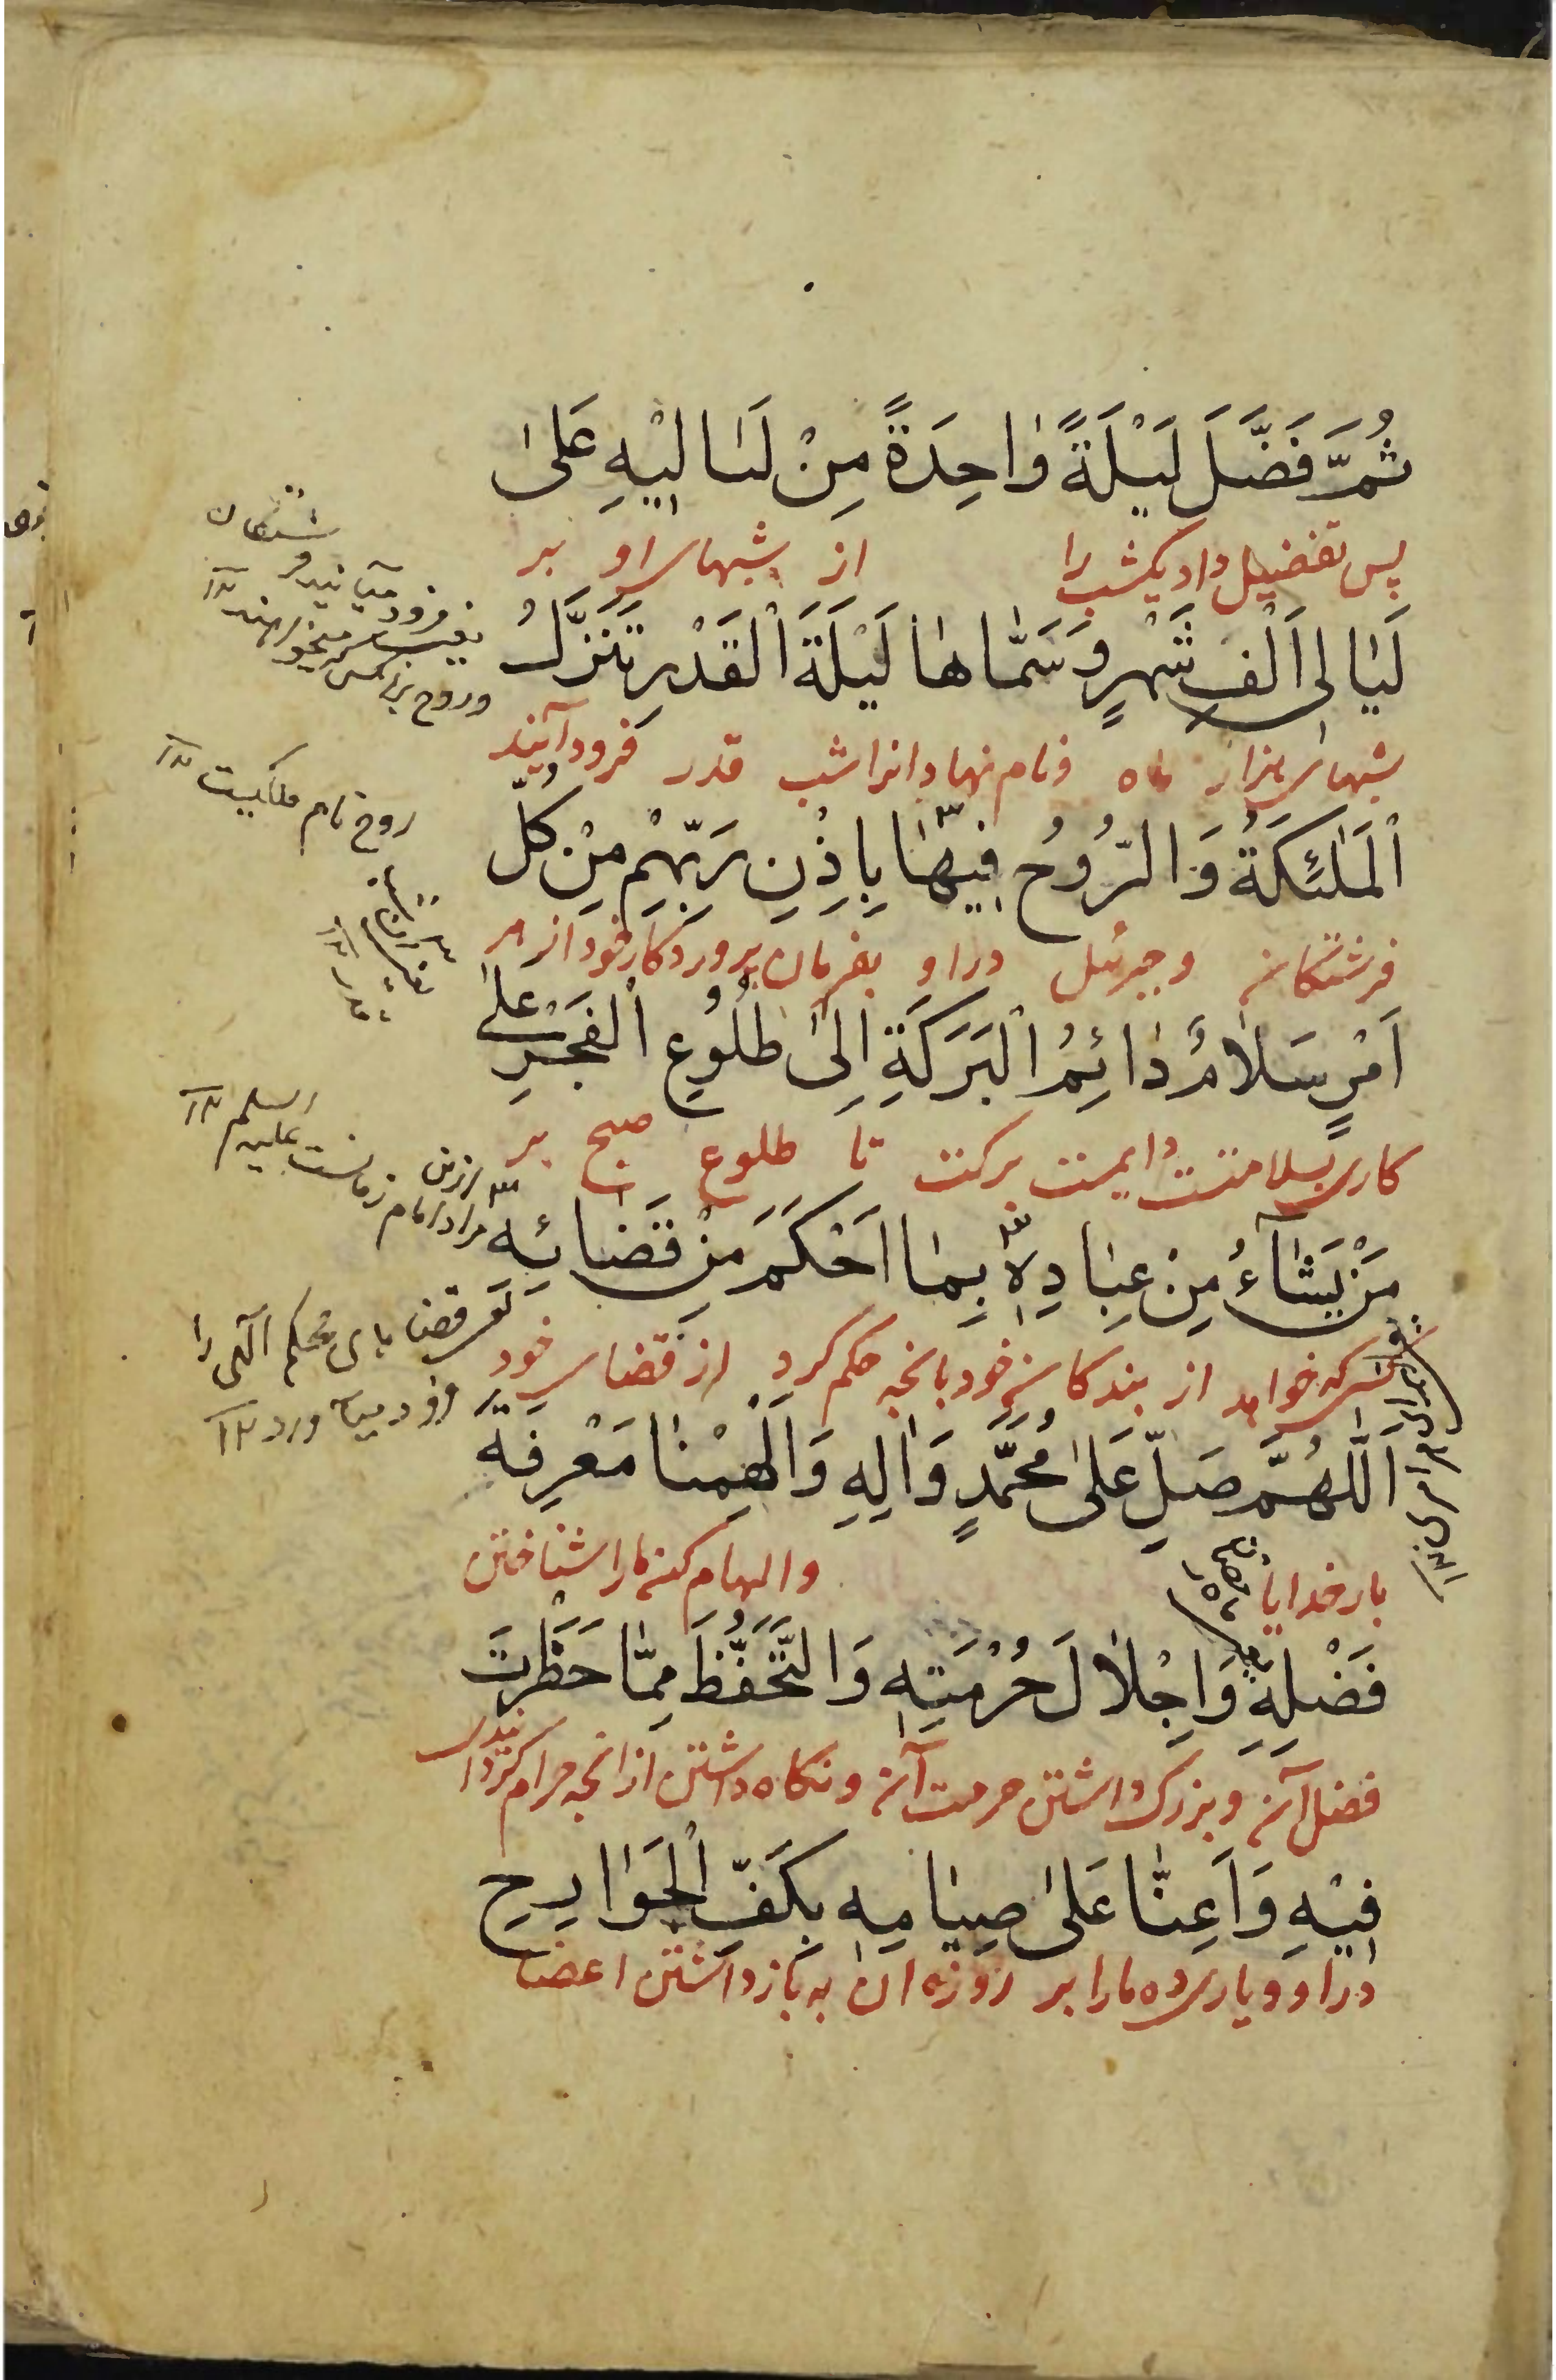 ثُمَّ فَضَّلَ لَيْلَةً وٰاحِدَةً مِنْ لَيٰالِيْهِ عَلىٰ
پس تفضیل داد یکشب را از شبهای او بر
لَيٰالِى اَلْفِ شَهْرٍ وَسَمّٰاهٰا لَيْلَةَ الْقَدْرِ تَنَزَّلُ
شبهای هزار ماه و نام نهاد انرا شب قدر فرود آیند
الْمَلٰئِكَةُ وَالرُّوُحُ فِيهٰا بِاِذْنِ رَبِّهِمْ مِنْ كُلِّ
فرشتکان و جبرئیل در او بفرمان پروردکار خود از هر
اَمْرٍ سَلاٰمٌ دٰائِمُ الْبَرَكَةِ اِلىٰ طُلُوُعِ الْفَجْرِ عَلىٰ
کاری بسلامتست دایمست برکت تا طلوع صبح بر
مَنْ يَشٰآءُ مِنْ عِبٰادِهٖ بِمٰا اَحْكَمَ مِنْ قَضٰائِهٖ
هرکه خواهد از بندکان خود بانچه حکم کرد از قضای خود
اَللّٰهُمَّ صَلِّ عَلىٰ مُحَمَّدٍ وَاٰلِهٖ وَاَلْهِمْنٰا مَعْرِفَةَ
بار خدایا والهام کن ما را شناختن
فَضْلِهٖ وَاِجْلاٰلَ حُرْمَتِهٖ وَالتَّحَفُّظَ مِمّٰا حَظَرْتَ
فضل آن و بزرک داشتن حرمت آن و نکاه داشتن از انچه حرام کردانیدی
فِيْهِ وَاَعِنّٰا عَلىٰ صِيٰامِهٖ بِكَفِّ الْجَوٰارِحِ
در او و یاری ده ما را بر روزه ان به باز داشتن اعضا
روح نام ملکیست ۱۲
مراد امام زمانست علیه السلم ۱۲
قضا های محکم الهی را